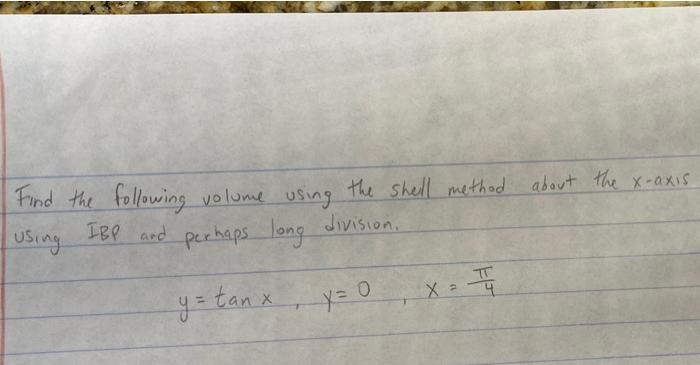 Find the following volume using the shell method about the x-axis
using IBP and perhaps long division.
y = tan x , y = 0 , x = π/4